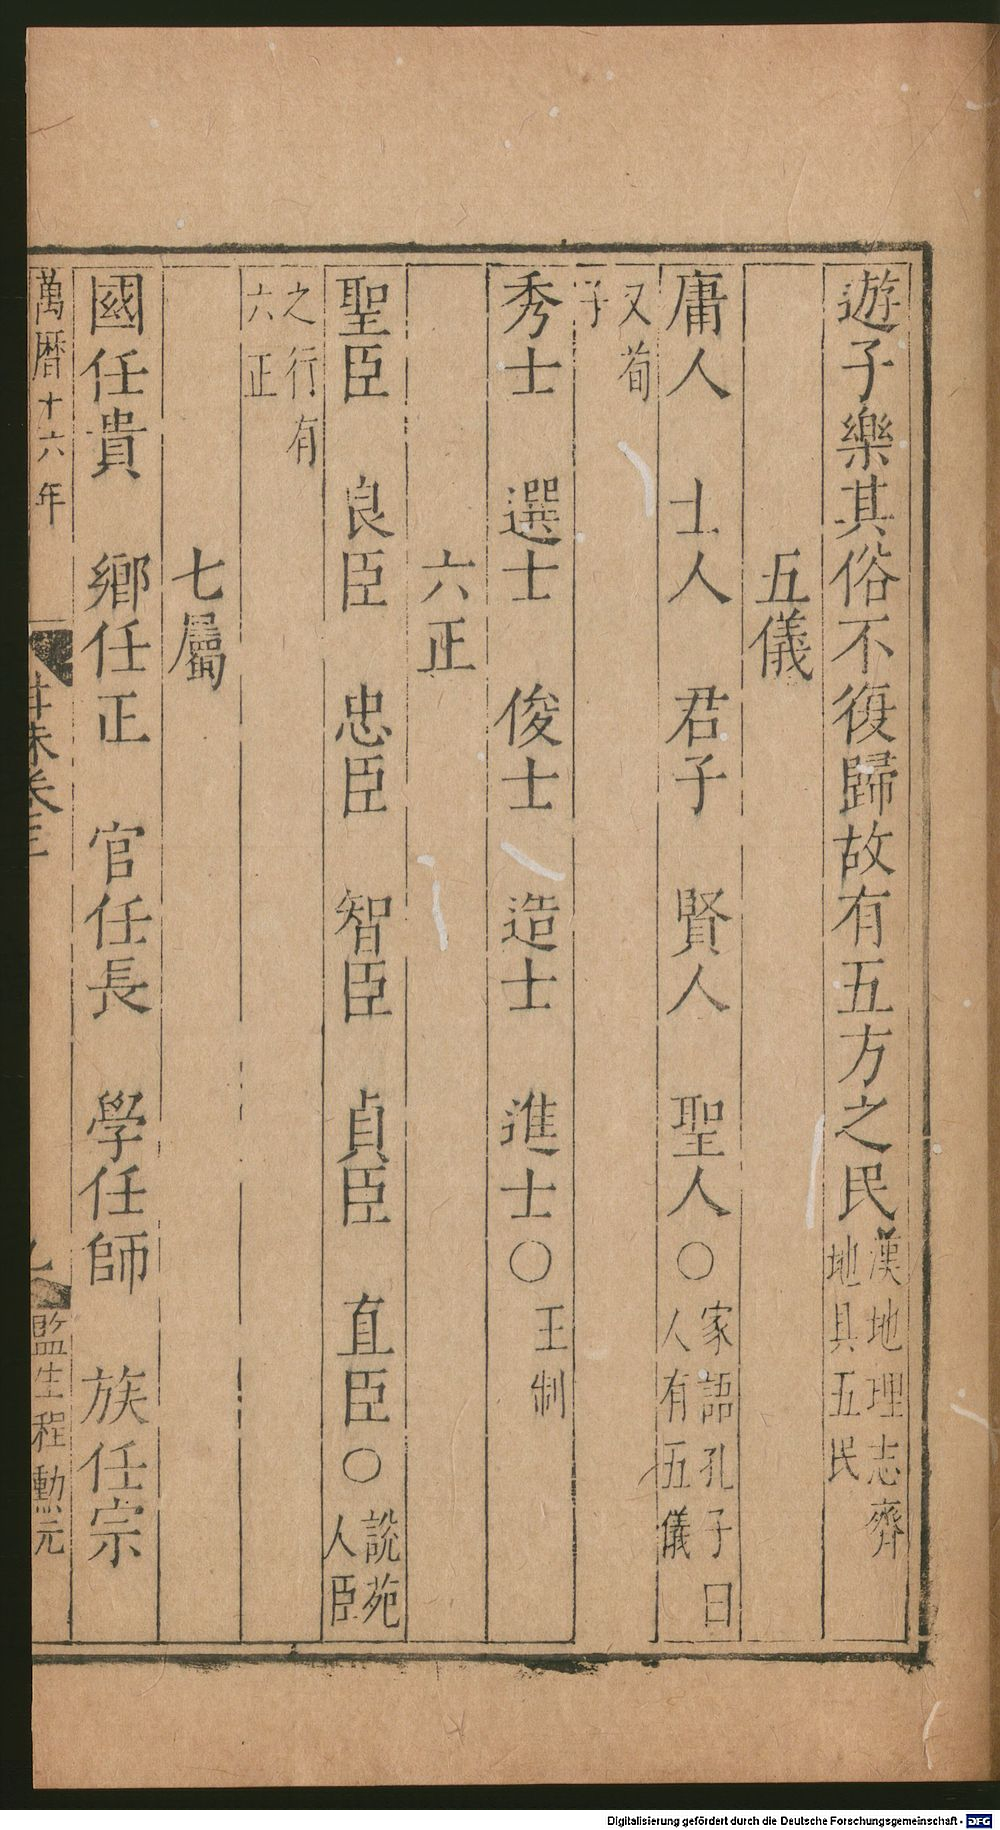 遊子樂其俗不復歸故有五方之民漢地理志齊地具五民
五儀
庸人 士人 君子 賢人 聖人○家語孔子曰人有五儀
又荀子
秀士 選士 俊士 造士 進士○王制
六正
聖臣 良臣 忠臣 智臣 貞臣 直臣○說苑人臣
之行有六正
七屬
國任貴 鄉任正 官任長 學任師 族任宗
萬曆十六年 卷三 監生程勳元
Digitalisierung gefördert durch die Deutsche Forschungsgemeinschaft - DFG